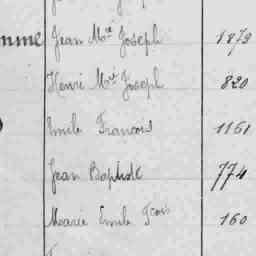 Jean Mie Joseph 1879
Henri Mie Joseph 820
Emile Francois 1161
Jean Baptiste 774
Marie Emile Fcois 160